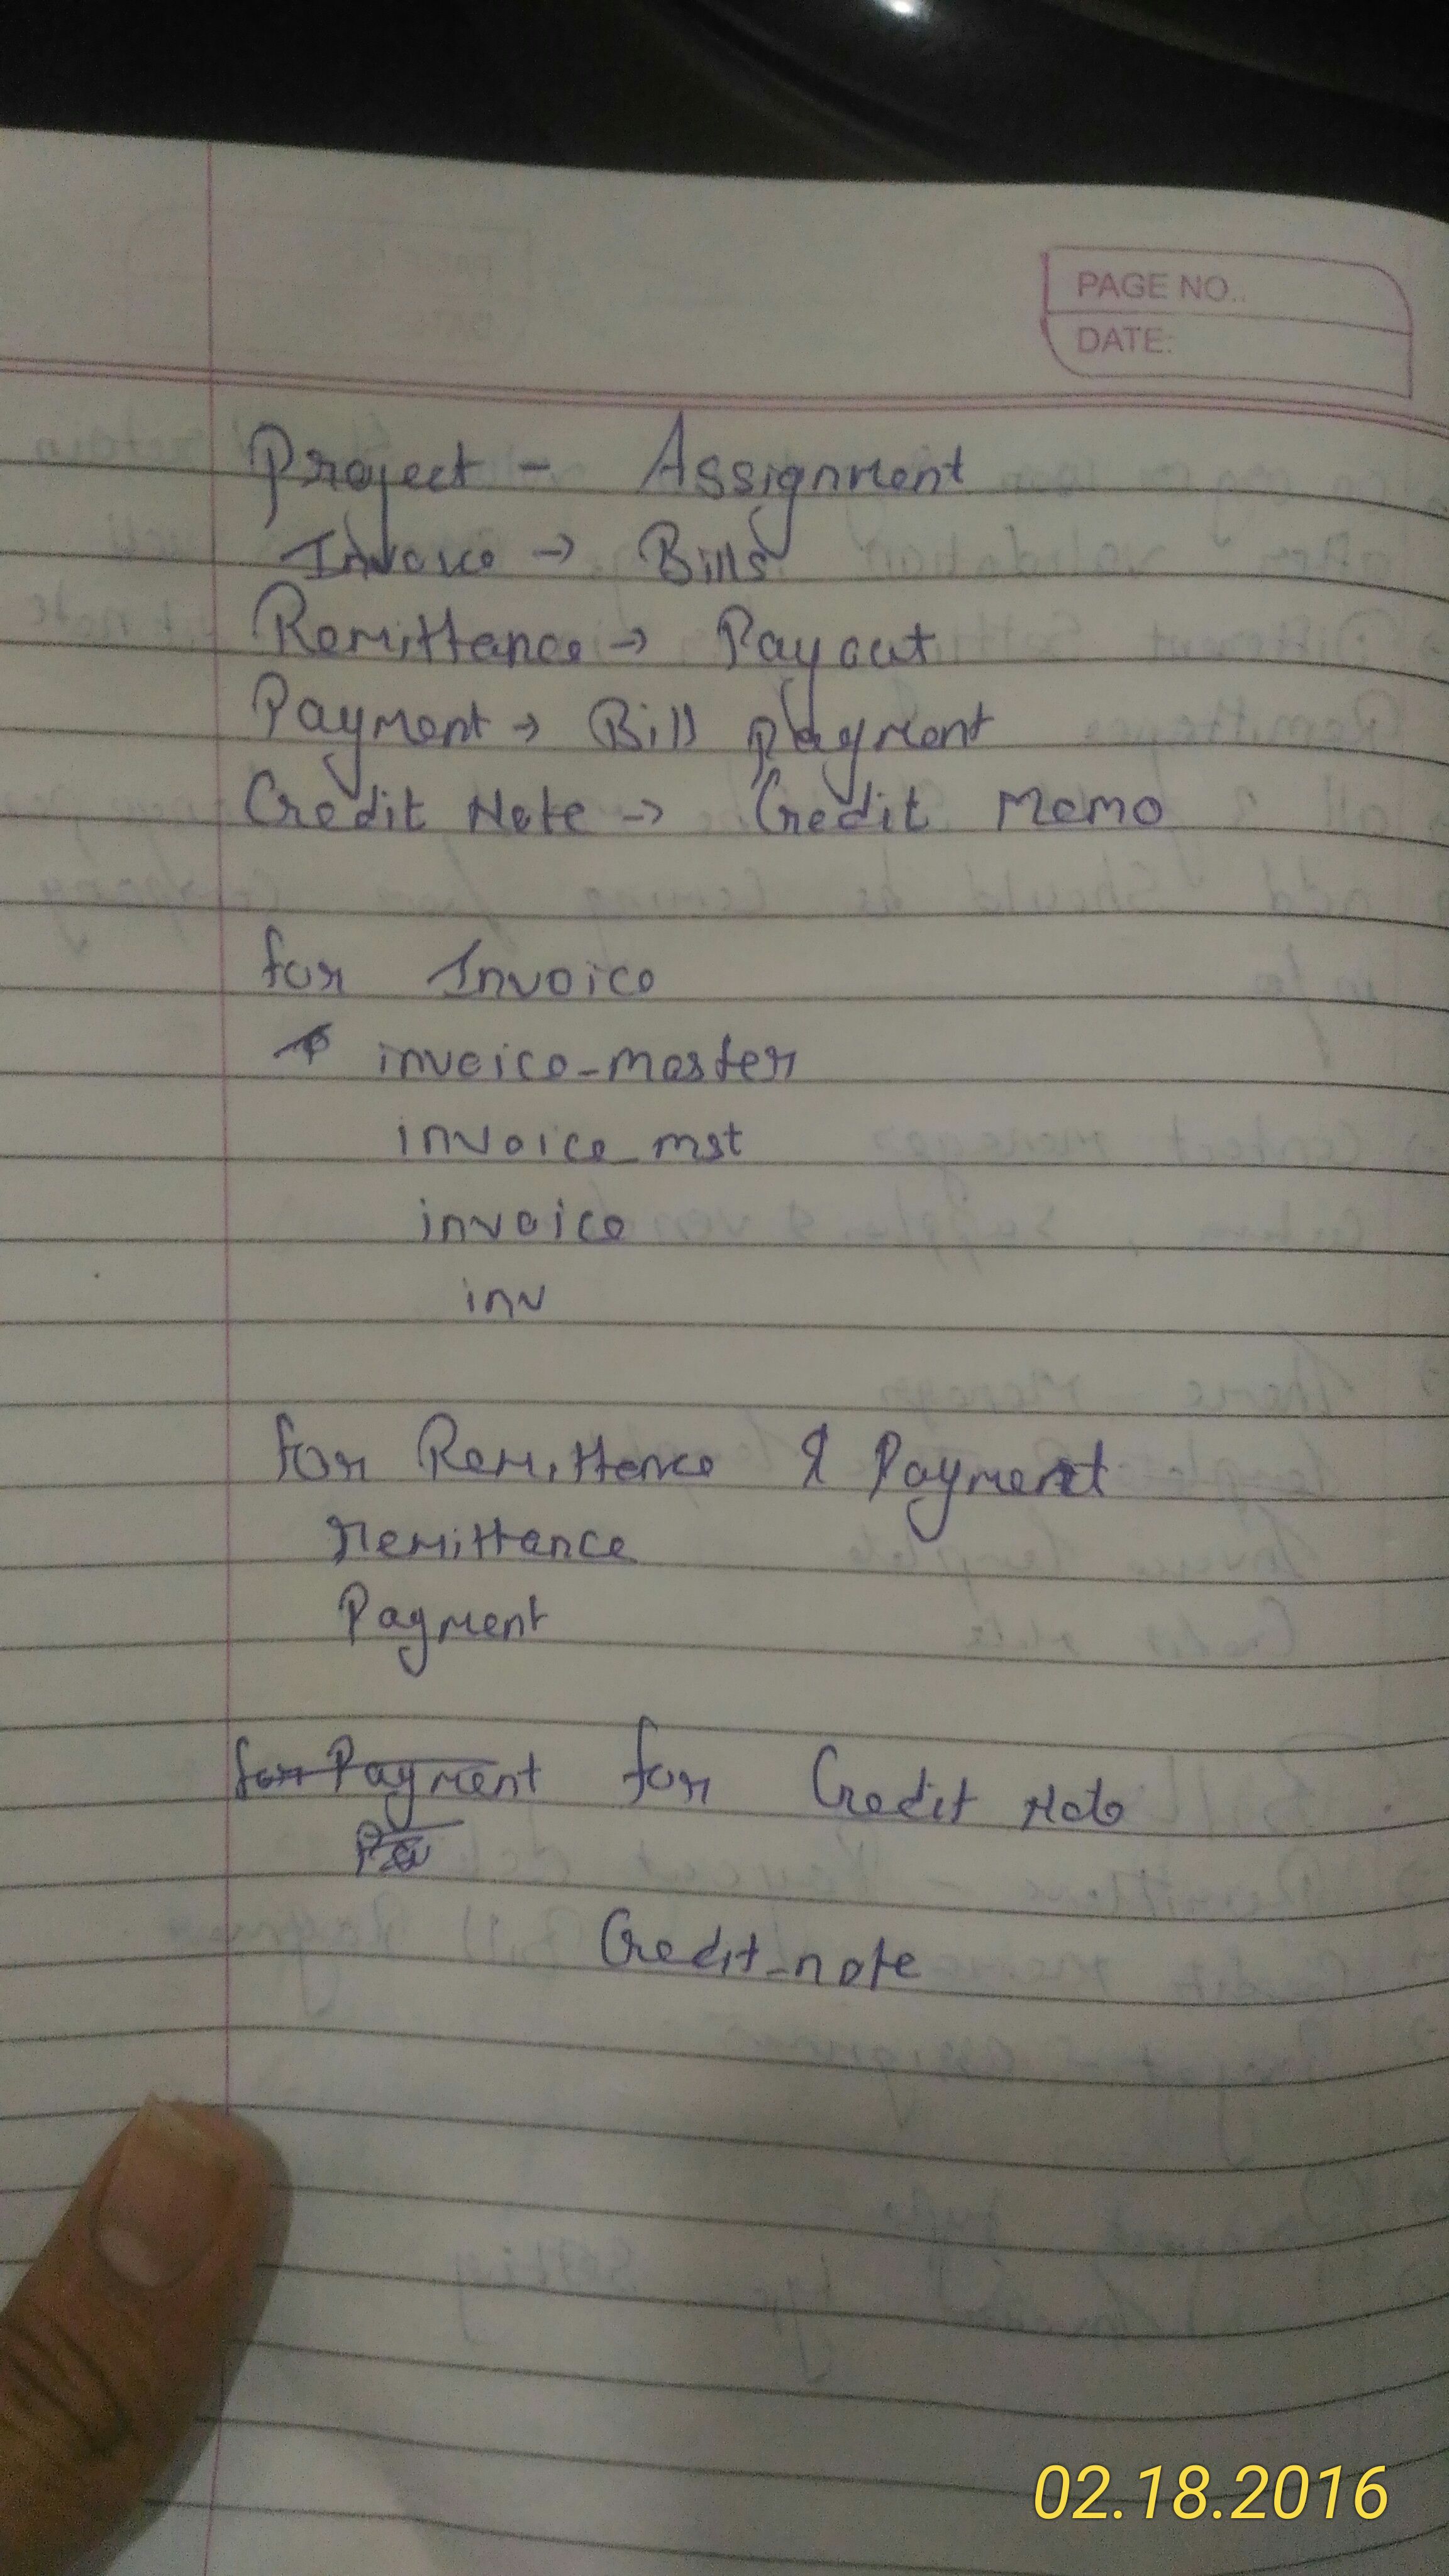 PAGE NO..
DATE:
Project - Assignment
Invoice → Bills
Remittance → Payout
Payment → Bill payment
Credit Note → Credit Memo
for Invoice
invoice-master
invoice_mst
invoice
inv
for Remittance & Payment
remittance
Payment
for Payment for Credit Note
Credit_note
02.18.2016